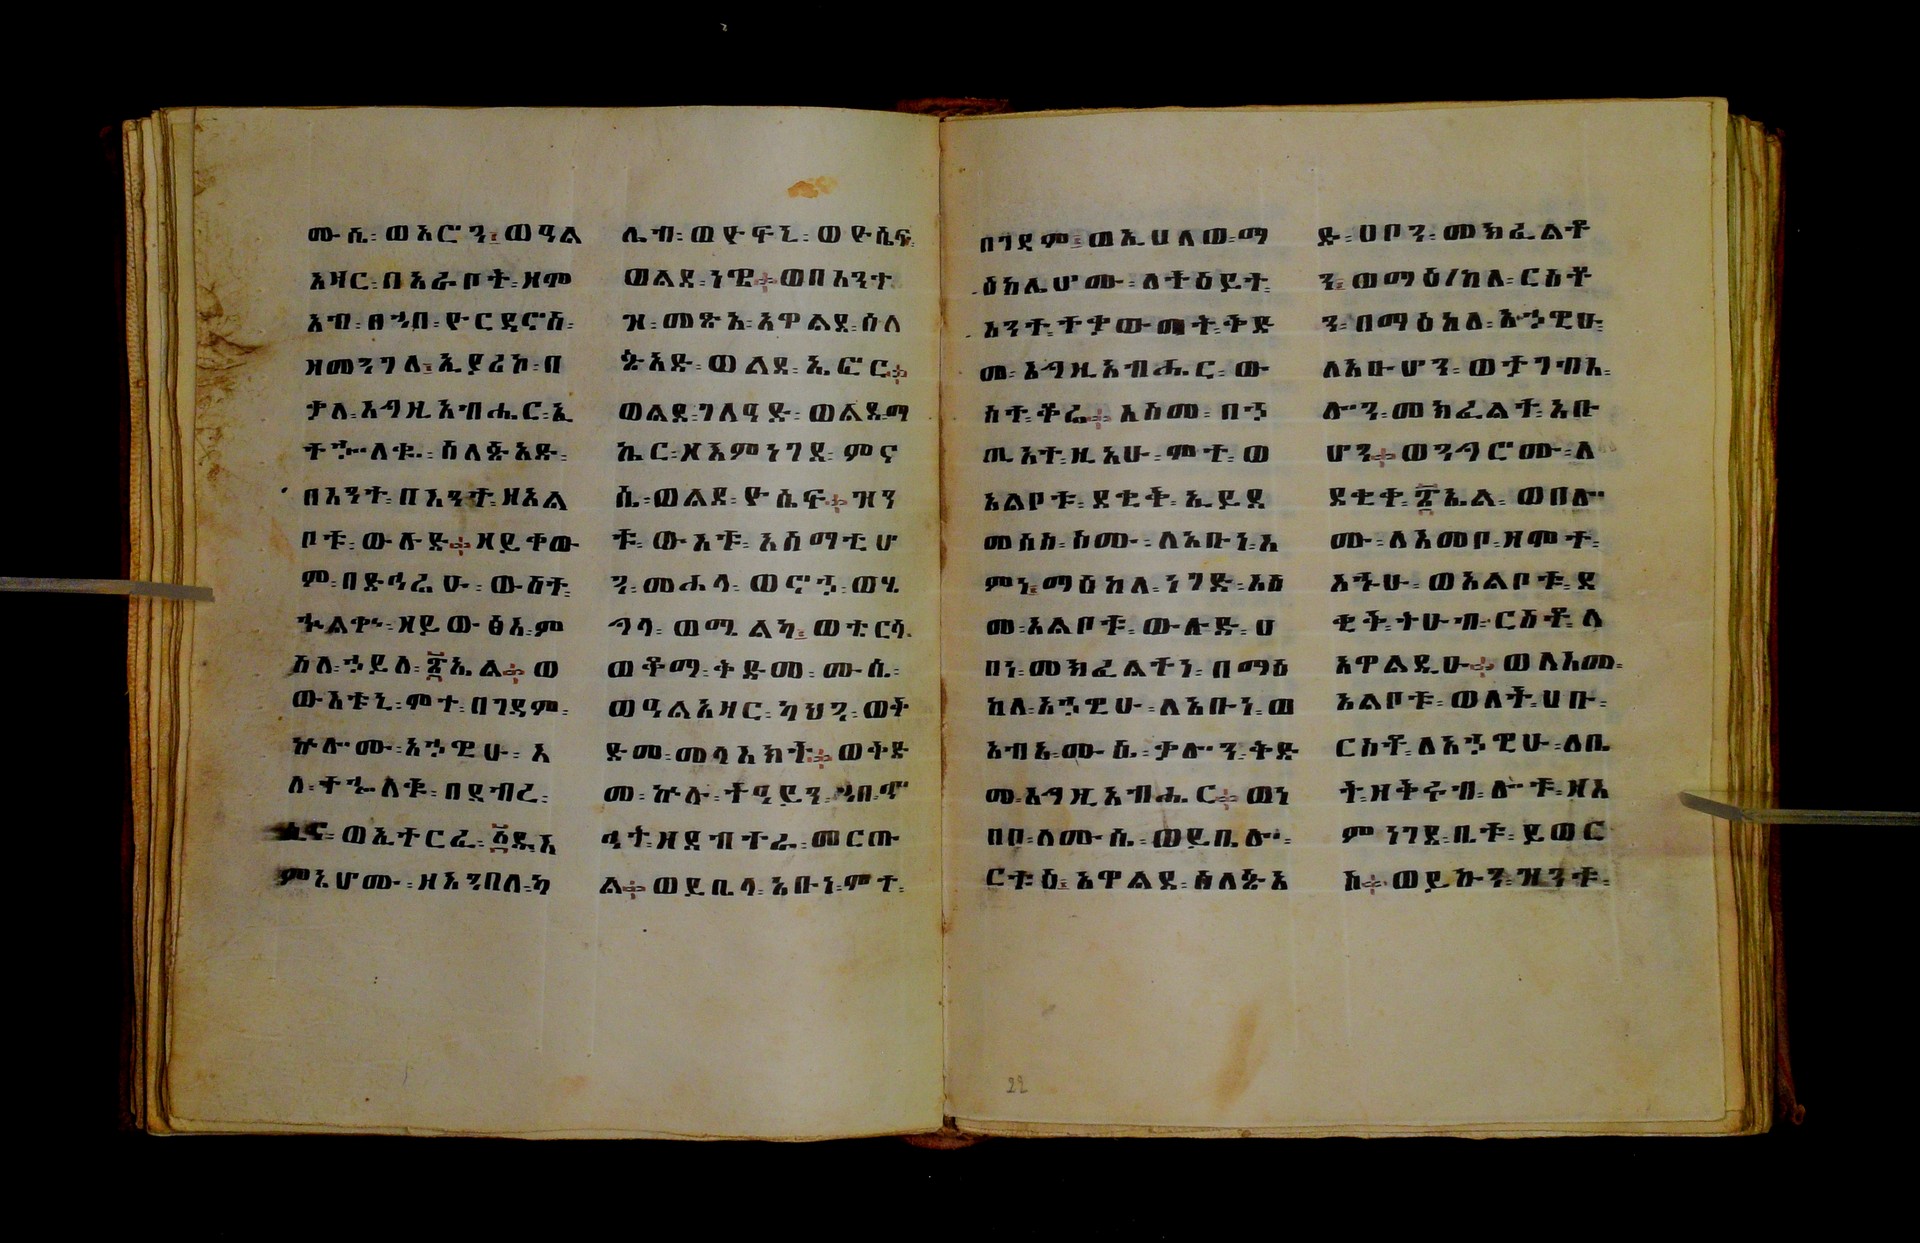 ሙሴ፡ወአሮን፡ወዓል
አዛር፡በአራቦት፡ዘሞ
አብ፡ፀኀበ፡ዮርዳኖስ፡
ዘመንገለ፡ኢያሪኮ፡በ
ቃለ፡እግዚአብሔር፡ኢ
ተኍለቁ፡ሰለጰአድ፡
በእንተ፡በእንተ፡ዘአል
ቦቱ፡ውሉድ፨ዘይቀው
ም፡በድኅሬሁ፡ውስተ፡
ኈልቍ፡ዘይውፅእ፡ም
ስለ፡ኃይለ፡፳ኤል፨ወ
ውእቱኒ፡ሞተ፡በገዳም፡
ኵሎሙ፡አኃዊሁ፡እ
ለ፡ተኈለቁ፡በደብረ፡
ሲና፡ወኢተርፈ፡፩ዱ፡እ
ምኔሆሙ፡ዘእንበለ፡ካ
ሌብ፡ወዮፍኒ፡ወዮሴፍ፡
ወልደ፡ነዊ፨ወበእንተ
ዝ፡መጽኣ፡አዋልደ፡ሰለ
ጰአድ፡ወልደ፡ኤፎር፨
ወልደ፡ገለዓድ፡ወልደ፡ማ
ኪር፡ዘእምነገደ፡ምና
ሴ፡ወልደ፡ዮሴፍ፨ዝን
ቱ፡ውእቱ፡አስማቲሆ
ን፡መሐላ፡ወኖኃ፡ወሄ
ግላ፡ወሚልካ፡ወቴርሳ፡
ወቆማ፡ቅድመ፡ሙሴ፡
ወዓልአዛር፡ካህን፡ወቅ
ድመ፡መሳእክት፨ወቅድ
መ፡ኵሉ፡ተዓይን፡ኀበ፡ኆ
ኅተ፡ዘደብተራ፡መርጡ
ል፨ወይቤላ፡አቡነ፡ሞተ፡
በገዳም፡ወኢሀለወ፡ማ
ዕከሌሆሙ፡ለተዕይት፡
እንተ፡ተቃወመት፡ቅድ
መ፡እግዚአብሔር፡ው
ስተ፡ቆሬ፨እስመ፡በኃ
ጢአተ፡ዚአሁ፡ሞተ፡ወ
አልቦቱ፡ደቂቅ፡ኢይደ
መሰስ፡ስሙ፡ለአቡነ፡እ
ምነ፡ማዕከለ፡ነገድ፡እስ
መ፡አልቦቱ፡ውሉድ፡ሀ
በነ፡መክፈልተነ፡በማዕ
ከለ፡አኃዊሁ፡ለአቡነ፡ወ
አብአ፡ሙሴ፡ቃሎን፡ቅድ
መ፡እግዚአብሔር፨ወነ
በቦ፡ለሙሴ፡ወይቤሎ፡
ርቱዕ፡አዋልደ፡ሰለጰአ
ድ፡ሀቦን፡መክፈልቶ
ን፡ወማዕከለ፡ርስቶ
ን፡በማዕከለ፡አኃዊሁ፡
ለአቡሆን፡ወታገብእ፡
ሎን፡መክፈልተ፡አቡ
ሆን፨ወንግሮሙ፡ለ
ደቂቀ፡፳ኤል፡ወበሎ
ሙ፡ለእመቦ፡ዘሞተ፡
እኁሁ፡ወአልቦቱ፡ደ
ቂቅ፡ተሁብ፡ርስቶ፡ለ
አዋልዲሁ፨ወለእመ፡
አልቦቱ፡ወለት፡ሀቡ፡
ርስቶ፡ለአኃዊሁ፡ለቤ
ት፡ዘቅሩብ፡ሎቱ፡ዘእ
ምነገደ፡ቤቱ፡ይወር
ስ፨ወይኩን፡ዝንቱ፡
22